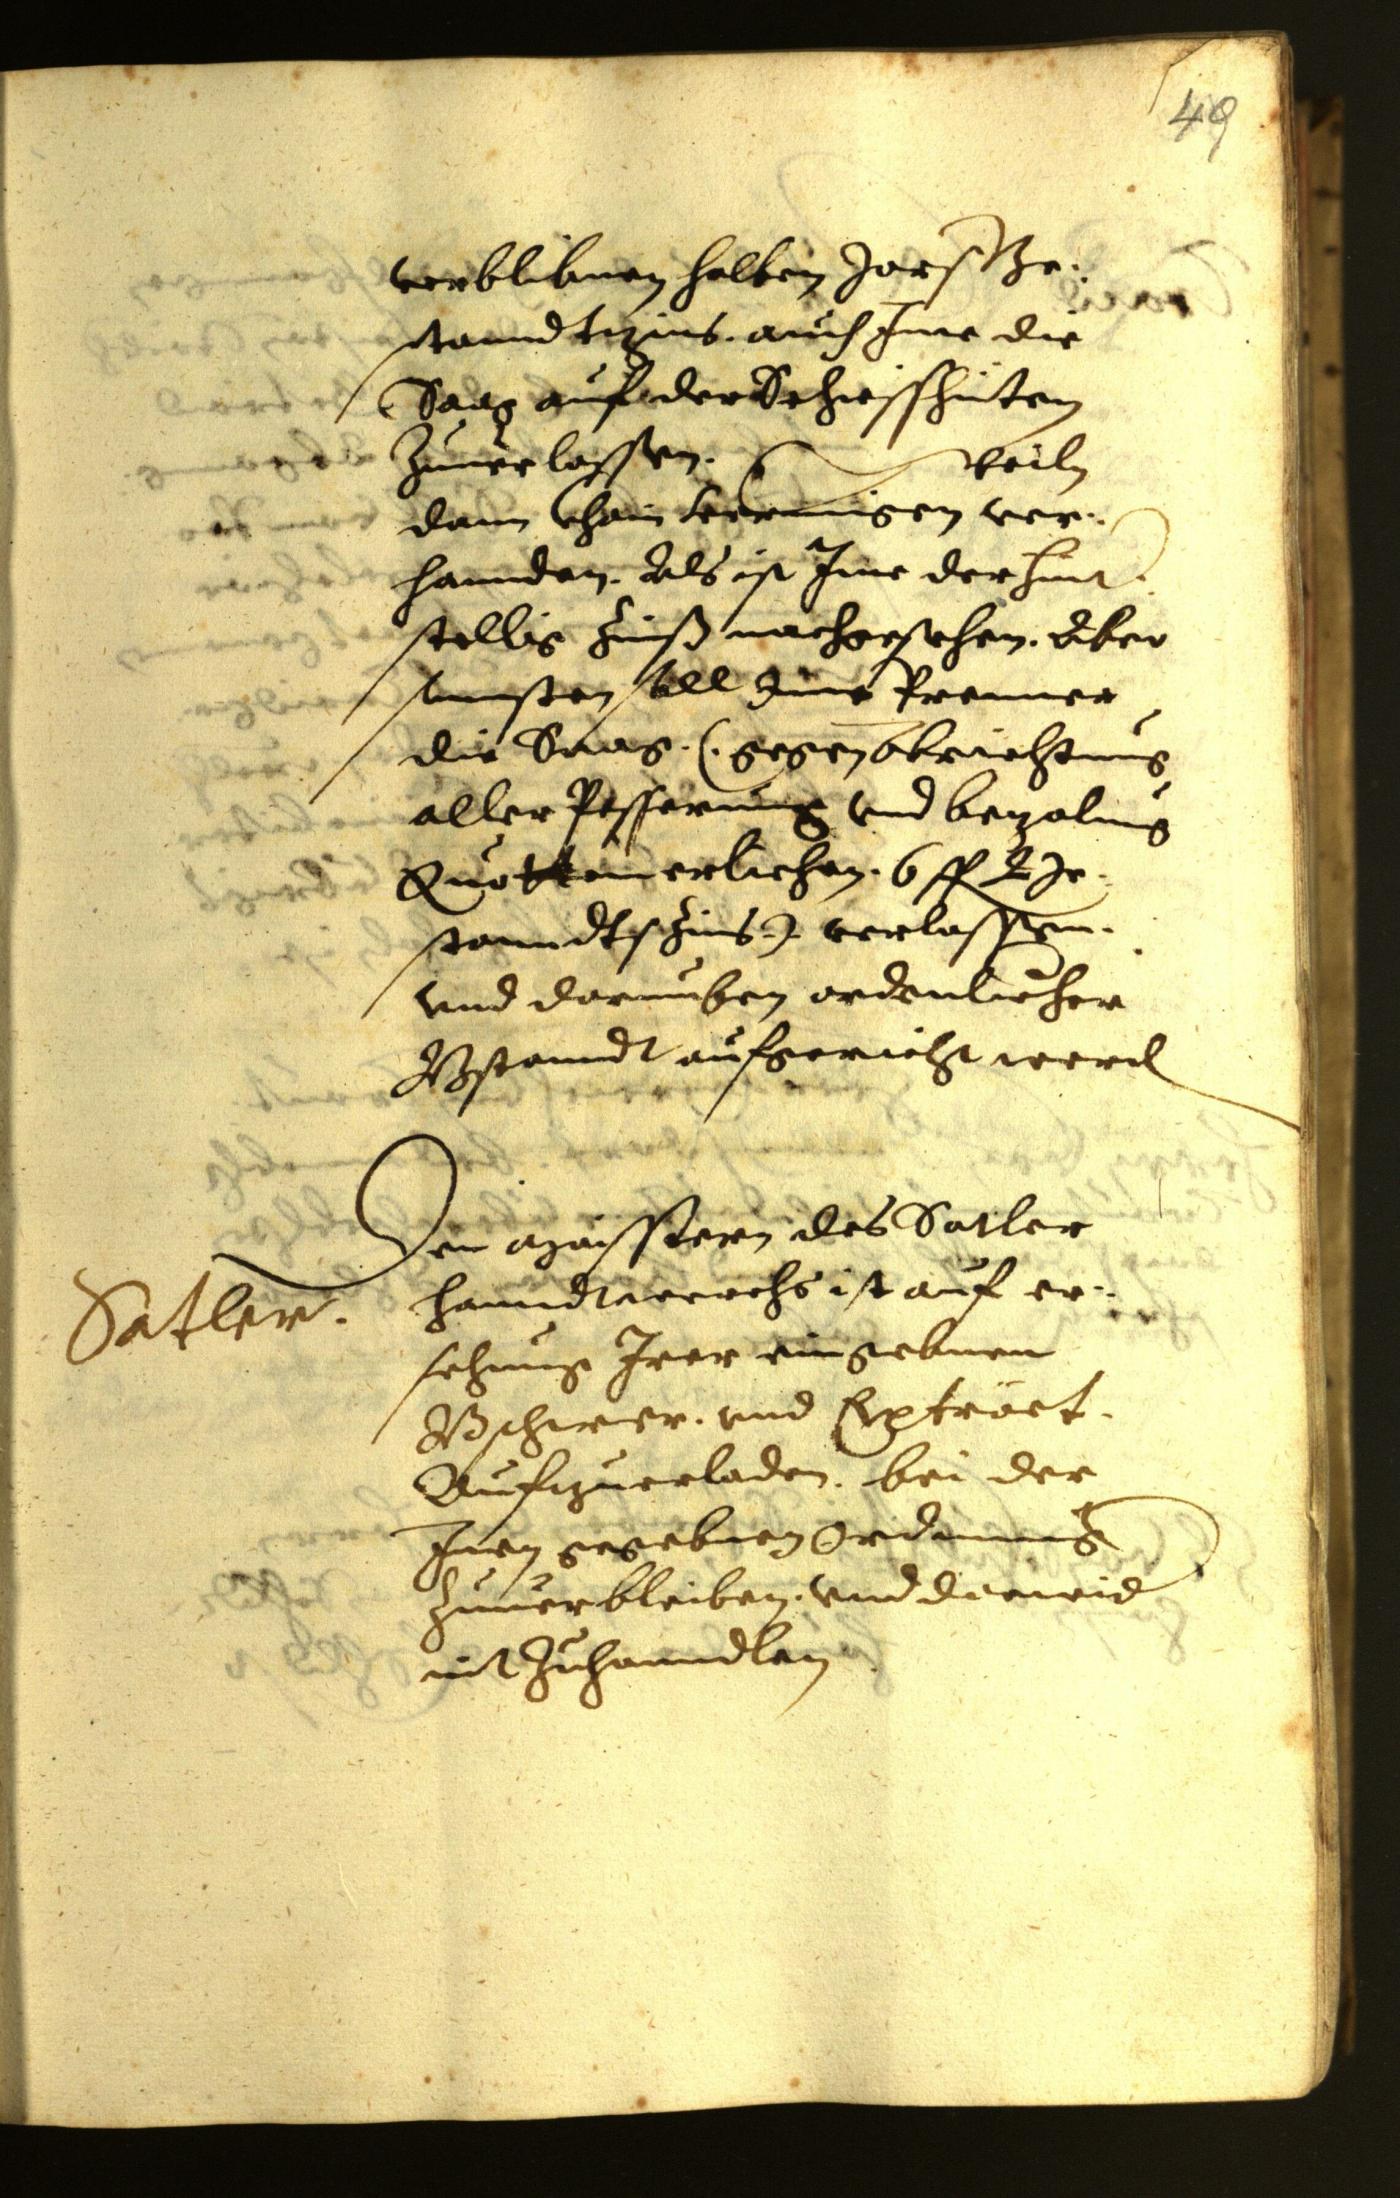 49
verblibnen halben Jars Be-
stanndtzins. auch Ime die
Saag auf der Schiesshüten
Zuuerlassen. Weiln
dann khain vermügen ver-
hannden. Als ist Ime der hint-
stellig Zinß nachgesehen. Aber
sunsten soll Ime Prenner
die Saag. (. gegen abrichtung
aller Pesserung vnd bezalung
Quottemerlichen. 6 ff
standtsZins.) verlassen.
vnd darumben ordenlicher
Bstanndt aufgericht werd
Satler.
Den maistern des Satler
hanndtwerchs ist auf er-
sehung Irer eingebnen
Bschwer. vnd Extract.
Aufzuerladen. bei der
Inen gegebnen Ordnung
Zuuerbleiben. vnd darwid
nit Zuhanndlen